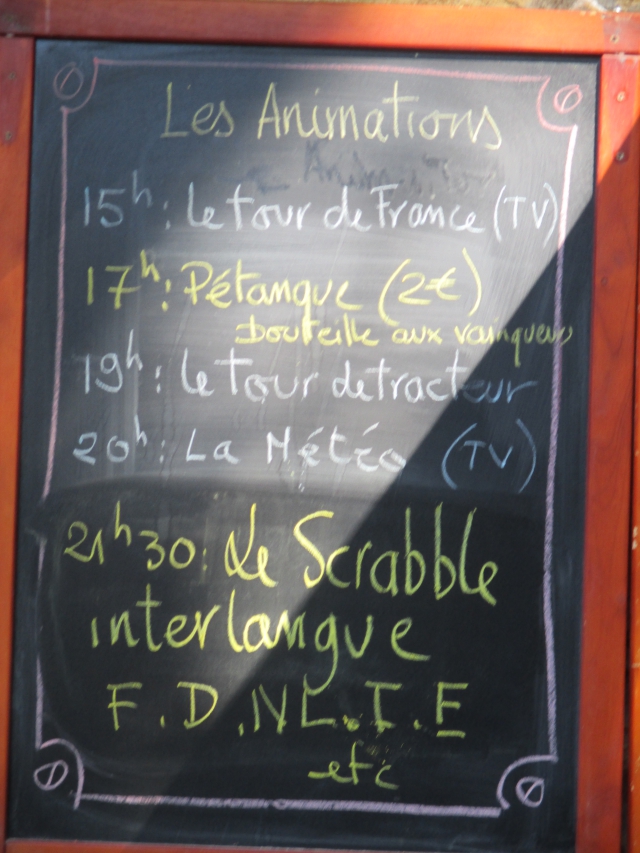 Les Animations
15h: Le tour de France (TV)
17h: Pétanque (2€)
bouteille aux vainqueurs
19h: Le tour de tracteur
20h: La Météo (TV)
21h30: Le Scrabble
interlangue
F.D.NL.I.E
etc